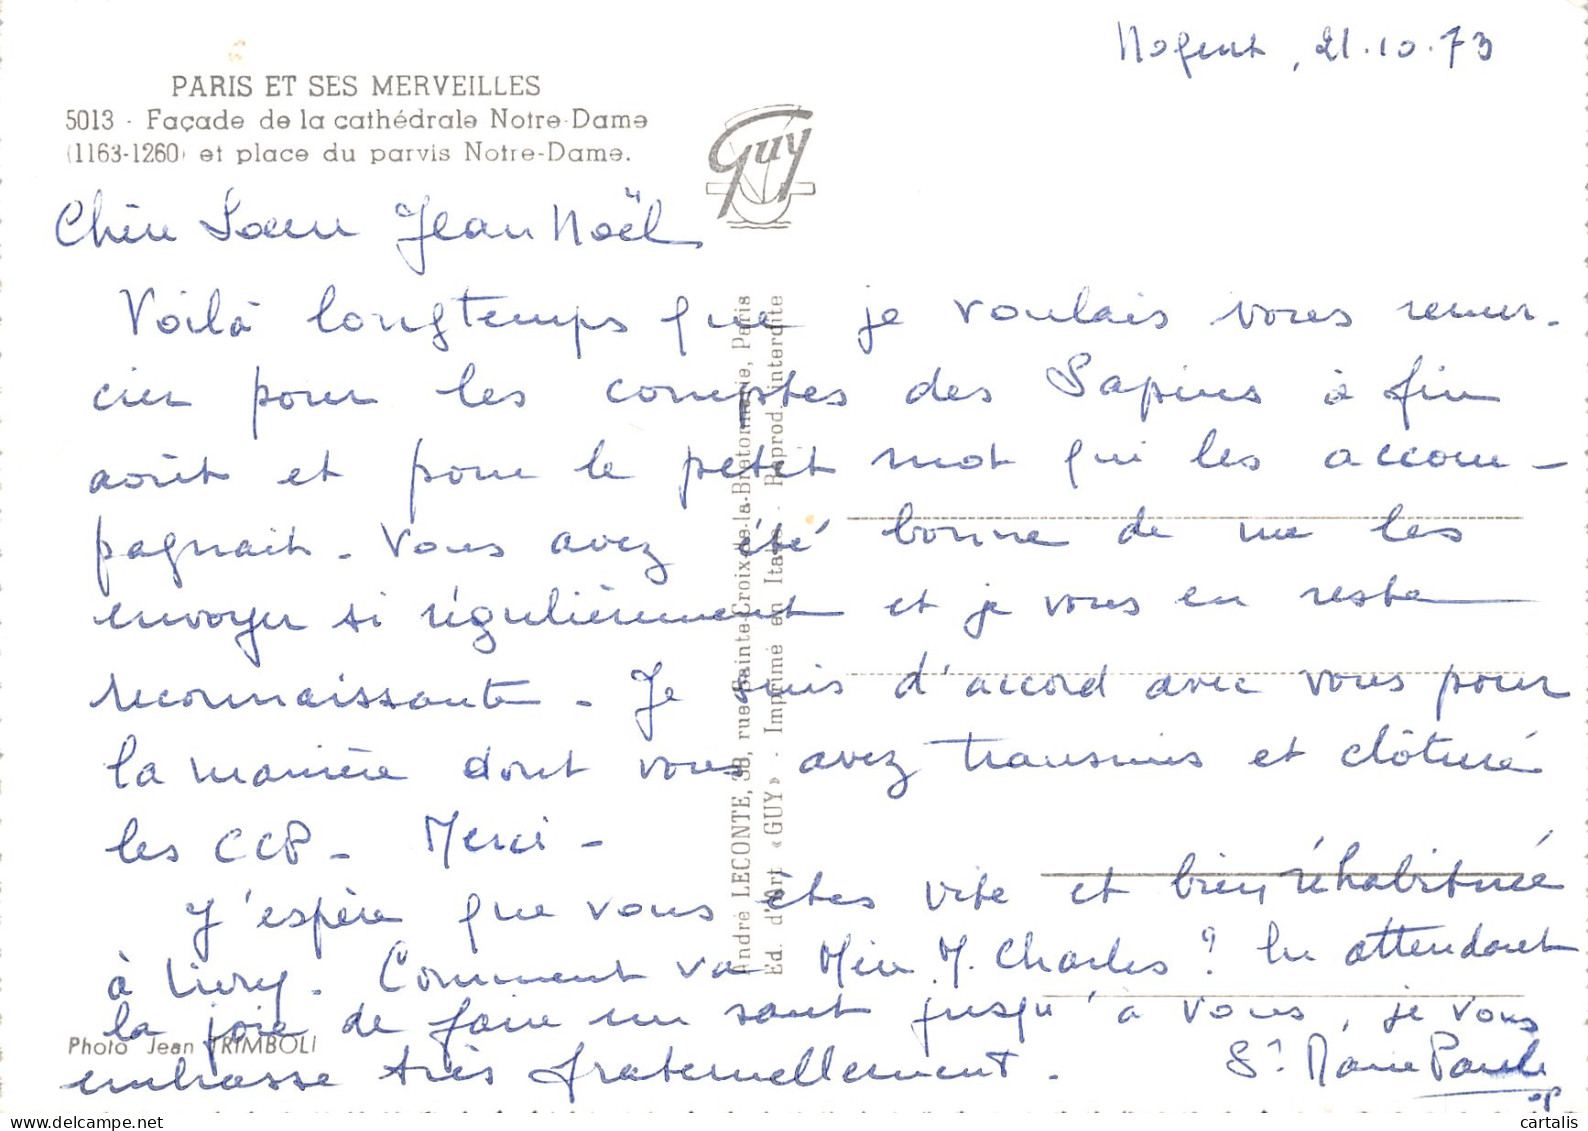 Nogent, 21.10.73
PARIS ET SES MERVEILLES
5013 - Façade de la cathédrale Notre-Dame
(1163-1260) et place du parvis Notre-Dame.
Guy
Chère Soeur Jean Noël
Voilà longtemps que je voulais vous remer-
cier pour les comptes des Sapins à fin
août et pour le petit mot qui les accom-
pagnait. Vous avez été bonne de me les
envoyer si régulièrement et je vous en reste
reconnaissante. Je suis d'accord avec vous pour
la manière dont vous avez transmis et clôturé
les CCP. Merci -
J'espère que vous êtes vite et bien réhabituée
à Livry. Comment va Mère M. Charles? En attendant
la joie de faire un saut jusqu'à vous, je vous
embrasse très fraternellement. Sr Marie Paule
op
Photo Jean TRIMBOLI
André LECONTE, 38, rue Sainte-Croix-de-la-Bretonnerie, Paris
Ed. d'Art «GUY» - Imprimé en Italie - Reprod. interdite
cartalis
https://www.delcampe.net